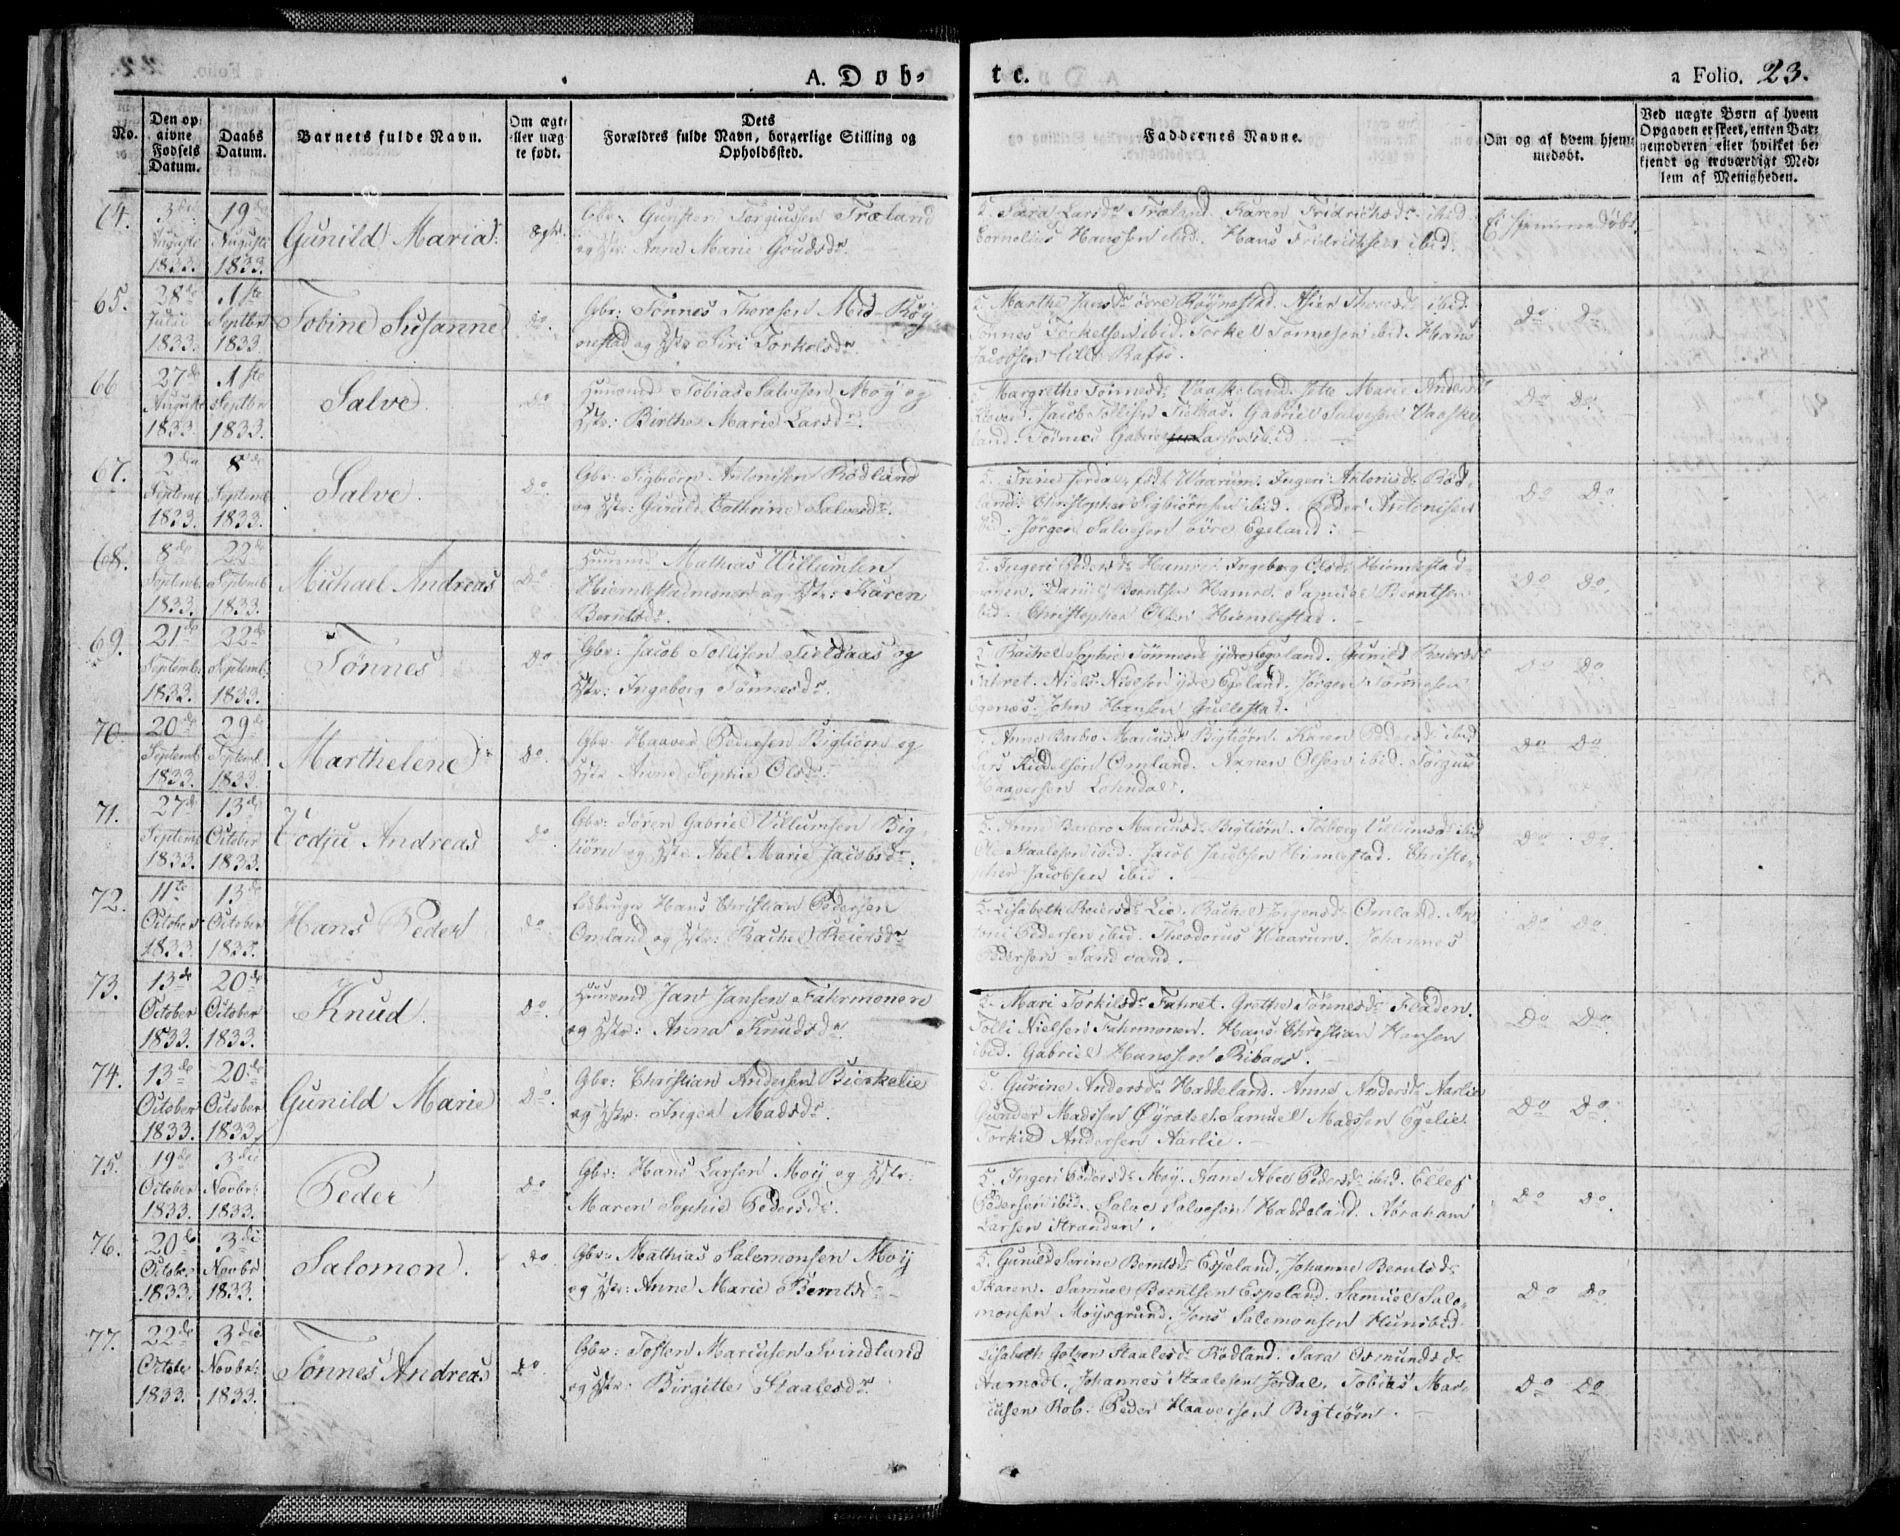 A. Døbte.
a Folio. 23.
No.
Den opgivne Fødsels Datum.
Daabs Datum.
Barnets fulde Navn.
Om ægte eller uægte født.
Dets Forældres fulde Navn, borgerlige Stilling og Opholdssted.
Faddernes Navne.
Om og af hvem hjemmedøbt.
Ved uægte Børn af hvem Opgaven er skeet, enten Barnemoderen eller hvilket bekjendt og troværdigt Medlem af Menigheden.
64. 3die Augusti 1833. 19de Augusti 1833. Gunild Maria. Ægte.
Gbr: Gunsten Torgiussen Træland
og Hstr: Anne Marie Goudsdr.
Sara Larsdr Træland. Karen Fridrichsdr ibid.
Cornelius Hanssen ibid. Hans Fridrichsen ibid.
Ei hjemmedøbt.
65. 28de Julii 1833. 1ste Septbr 1833 Tobine Susanne Do.
Gbr: Tønnes Thorosen Mid-Røy
onestad og Hstr: Siri Torkelsdr.
Marthe Jansdr øvre Røynestad. Asier Thoresdr ibid.
Tønnes Torkelsen ibid. Torkel Tønnesen ibid. Hans
Jacobsen
Do Do
66 27de Augusti 1833. 1ste Septbr 1833. Salve. Do
Huusmd Tobias Salvesen Moy og
Hstr: Birthe Marie Larsdr.
Margrethe Tønnesdr Vaaskeland. Marie Andersdr
Jacob Tollisen Gabriel Salvesen Vaaske
land. Tønnes Gabriel Larsen ibid
Do Do.
67. 2den Septemb 1833. 8de Septemb 1833. Salve. Do.
Gbr: Sigbiørn Antonisen Rødland
og Hstr: Gunild Cathrine Salvesdr.
Trine Jordal født Waarum. Ingeri Antonisdr Rød
land. Christopher Sigbiørnsen ibid. Peder Antonisen
ibid. Jørgen Salvesen øvre Egeland.
Do Do
68. 8de Septemb. 1833. 22de Septemb. 1833. Michael Andreas Do
Huusmd Mathias Willumsen
Hiemlestadmonen og Hstr: Karen
Berntsdr.
5. Ingeri Pedersdr Hamre. Ingeborg Olsdr Hiemlestad
monen. Daniel Berntsen Hamre. Samuel Berntsen
ibid. Christopher Olsen Hiemlestad.
Do Do.
69. 21de Septemb. 1833. 22de Septemb. 1833. Tønnes Do
Gbr: Jacob Tollisen Fieldaas og
Hstr: Ingeborg Tønnesdr.
5. Rachel Sophie Tønnesdr ydre Egeland. Gunild Reiersdr
Fahret. Niels Nielsen ydre Egeland. Jørgen Tønnesen
John Hansen Gullestad.
Do Do
70. 20de Septemb. 1833. 29de Septemb. 1833. Marthelene Do.
Gbr: Haaver Pedersen Bigtiørn og
Hstr Anne Sophie Olsdr.
Anne Barbro Marcusdr Bigtiørn. Karen Pedersdr ibid
Lars Kiddelsen Omland. Aanen Olsen ibid. Torgius
Haaversen Lohndal.
Do Do
71. 27de Septemb 1833. 13de October 1833. Todju Andreas Do.
Gbr: Søren Gabriel Villumsen Big
tiørn og Hstr Abel Marie Jacobsdr.
5. Anne Barbro Marcusdr Bigtiørn. Villumsdr ibid
Ole Staalesen ibid. Jacob Jacobsen Himlestad. Christo-
pher Jacobsen ibid.
Do Do.
72. 11te October 1833. 13de October 1833. Hans Peder Do.
Hans Christian Pedersen
Omland og Hstr: Rachel Reiersdr
5. Lisabeth Reiersdr Lie. Rachel Jørgensdr Omland. An
toni Pedersen ibid. Theodorus Haarum. Johannes
Pedersen Sandvand.
Do Do
73. 13de October 1833. 20de October 1833. Knud. Do.
Huusmd Jan Jansen Fahrmonen
og Hstr: Anna Knudsdr.
5. Mari Torkildsdr Fahret. Grethe Tønnesdr Fladen.
Tolli Nielsen Fahrmonen. Hans Christian Hansen
ibid. Gabriel Hanssen Ribaas.
Do Do.
74. 13de October 1833. 20de October 1833. Gunild Marie Do.
Gbr: Christian Andersen Bierkelie
og Hstr: Inger Madsdr.
5. Gurine Andersdr Haddeland. Anne Andersdr Aarlie
Gunder Madssen Øyrotel. Samuel Madssen Egelie.
Torkild Andersen Aarlie.
Do Do.
75. 19de October 1833. 3die Novbr: 1833. Peder Do
Gbr: Hans Larsen Moy og Hstr:
Maren Sophie Pedersdr.
5. Ingeri Pedersdr Moy. Anne Abel Pedersdr ibid. Ellef
Pedersen ibid. Salve Salvesen Haddeland. Abraham
Larsen Stranden.
Do Do.
76. 20de October 1833. 3die Novbr 1833. Salomon. Do.
Gbr: Mathias Salomonsen Moy
og Hstr: Anne Marie Berntsdr
5. Gunild Serine Berntsdr Espeland. Johanne Berntsdr
Skaren. Samuel Berntsen Espeland. Samuel Salo-
monsen Moysgrund. Jens Salomonsen Hunsbed
Do Do.
77. 22de October 1833. 3die Novbr: 1833. Tønnes Andreas Do
Gbr: Tosten Marcusen Svindland
og Hstr: Birgitte Staalesdr.
Lisabeth Staalesdr Rødland. Sara Osmundsdr
Aamodt. Johannes Staalesen Jordal. Tobias Mar-
cusen Rob. Peder Haaversen Bigtiørn.
Do Do